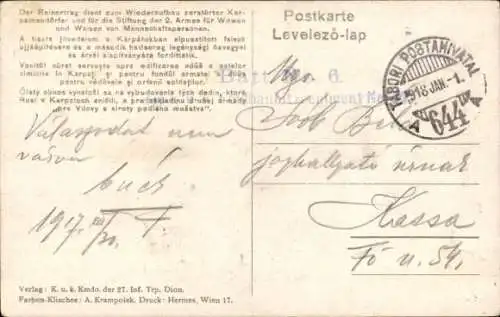 Der Reinertrag dient zum Wiederaufbau zerstörter Kar-
pathendörfer und für die Stiftung der 2. Armee für Witwen
und Waisen von Mannschaftspersonen.
A tiszta jövedelem a Kárpátokban elpusztított falvak
ujjáépitésére és a második hadsereg legénységi özvegyei
és árvái alapitványára fordittatik.
Venitül curat serveşte spre edificarea
Karpaţi şi pentru fondül armatei
pentru vĕduvele şi orfanii soldaţilor.
Čistý obnos vynaloží sa na vybudovanie tých dedín, ktoré
Rusi v Karpatoch zničili, a
pre Vdovy a siroty padlého mužstva.
Válaszodat nem
várom
1917. XII/30.
Verlag: K. u. k. Kmdo. der 27. Inf. Trp. Dion.
Farben-Klischee: A. Krampolek. Druck: Hermes, Wien 17.
Postkarte
Levelező-lap
6.
TÁBORI POSTAHIVATAL
1918 JAN. -1.
A 644
joghallgató úrnak
Kassa
Fő u. 54.